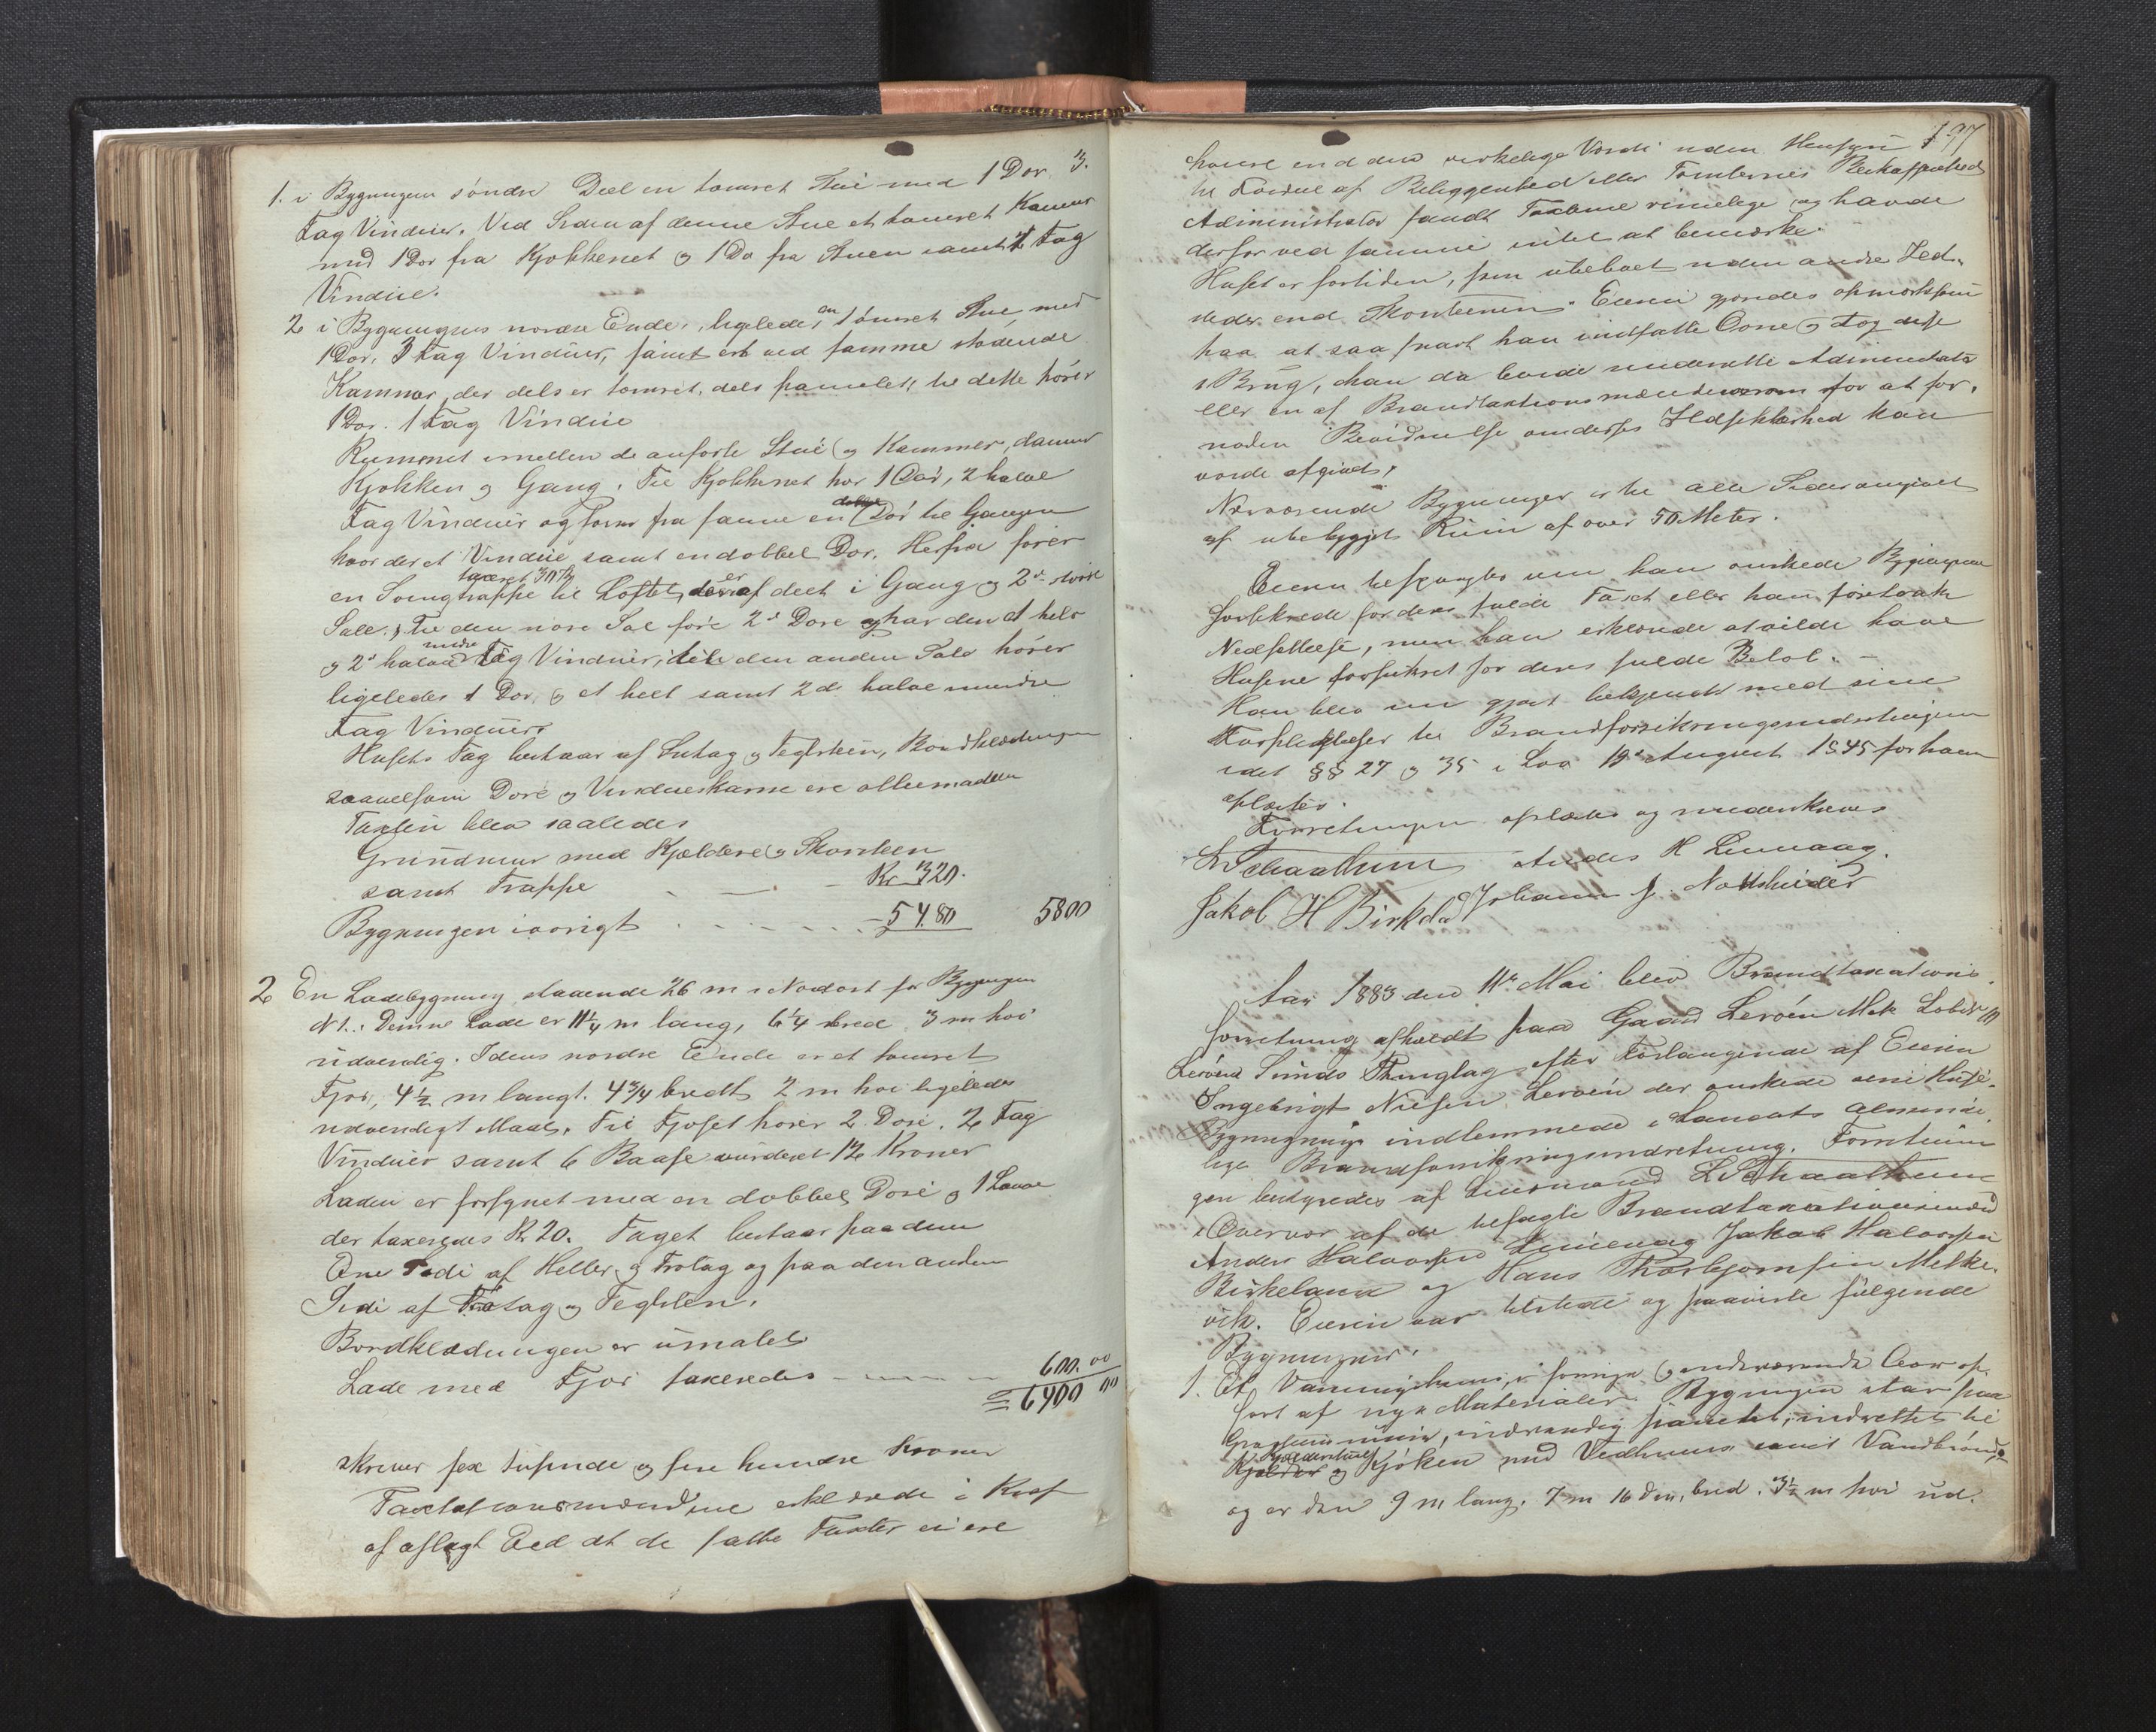 1. i Bygningen søndre Deel en tømret Stue med 1 Dør 3.
Fag Vinduer. Ved Siden af denne Stue et tømret Kammer
med 1 Dør fra Kjøkkenet og 1 Do fra Stuen samt 1 Fag
Vindue.
2 i Bygningens nordre Ende, ligeledes en tømret Stue med
1 Dør, 3 Fag Vinduer, samt et ved samme stødende
Kammer, der dels er tømret, dels panelet, til dette hører
1 Dør. 1 Fag Vindue
Rummet imellem de anførte Stue og Kammer, danner
Kjøkken og Gang. Til Kjøkkenet hør 1 Dør, 2 halve
Fag Vinduer og fører fra samme en dobbel Dør til Gangen
hvor der et Vindue samt en dobbel Dør. Herfra fører
en Svingtrappe taxeret 30 Kr til Loftet, der er afdeelt i Gang og 2de større
Sale. Til den nore Sal føre 2de Døre og har den et helt
og 2de halve mindre Fag Vinduer, til den anden Sale hører
ligeledes 1 Dør, og et heelt samt 2de halve mindre
Fag Vinduer.
Husets Tag bestaar af Sutag og Teglsteen, Bordklædningen
saavelsom Døre og Vindueskarme ere alle malede
Taxten blev saaledes
Grundmur med Kjeldere og Skorsteen
samt Trappe - - - Kr 320.
Bygningen iøvrigt - 5480 5800
2 En Ladebygning staaende 26 m i Nordost for Bygningen
N 1.: Denne Lade er 11 1/4 m lang, 6 1/4 bred 3 m høi
udvendig. I dens nordre Ende er et tømret
Fjøs, 4 1/2 m langt. 4 3/4 bredt 2 m høi ligeledes
udvendigt Maal. Til Fjøset hører 2 Døre. 2 Fag
Vinduer samt 6 Baase vurderet 12 Kroner
Laden er forsynet med en dobbel Døre og 1 Laave
der taxeres Kr 20. Taget bestaar paa den
Ene Side af Heller og Trotag og paa den anden
Side af Træstag og Teglsten.
Bordklædningen er umalet
Lade med Fjøs taxeredes - - - 600.00
= 6400 00
skriver sex tusende og fire hundre Kroner
Taxtationsmændene erklærede i Kraf
af aflagt Eed at de satte Taxter ei ere
197
høiere end den virkelige Værdi uden Hensyn
til Fordeel af Beliggenhed eller Tomternes Beskaffenhed
Administrator fandt Taxterne rimelige og havde
derfor ved samme intet at bemærke.
Huset er fortiden, som ubeboet uden andre Ild-
steder end Skorstenen. Eieren gjordes opmærksom
paa at saa snart han indsatte Ovne og tog disse
i Brug, han da burde underrette Administrator
eller en af Brandtaxtionsmændene herom for at for-
nøden Bevidnelse om dets Ildsikkerhed kan
vorde afgivet.
Nærværende Bygninger er til alle Sider omgivet
af ubebygget Rum af over 50 Meter.
Eieren bespurgtes om han ønskede Bygningerne
forsikrede for deres fulde Taxt eller han foretrak
Nedsettelse, men han erklærede at vilde have
Husene forsikret for deres fulde Beløb. -
Han blev nu gjort bekjendt med sine
Forpligtelser til Brandforsikringsindretningen
idet §§ 27 og 35 i Lov 19de August 1845 for ham
oplæstes.
Forretningen oplæstes og underskreves
L Schaathun Anders H Lunnaag.
Jakob H Birkeland Johannes J. Nottsheider
Aar 1883 den 11te Mai blev Brandtaxations-
forretning afholdt paa Gaard Lerøen Mtk Løbeno
Lerøen Sunds Thinglag efter Forlangende af Eieren
Ingebrigt Nielsen Lerøen der ønskede sine Huse-
Bygninger indlemmede i Landets Almind-
lige Brandforsikringsindretning. Forretnin
gen bestyredes af Lensmand L Schaathun
i Overvær af de befagte Brandtaxationsmænd
Anders Halvorsen Lunnaag Jakob Halvorsen
Birkeland og Hans Thorbjørnsen Melke-
vik. Eieren var tilstede og paaviste følgende
Bygninger.
1. Et Vaaningshuus, i forrige og indeværende Aar op
ført af nye Materialer. Bygningen staar paa
Graasteensmuur, indvendig panelet, indrettet til
Kjelderstue og Kjøken med Vedhuus samt Vandbrønd,
og er den 9 m lang. 7 m 16 dm. bred. 3 1/2 m høi ud-